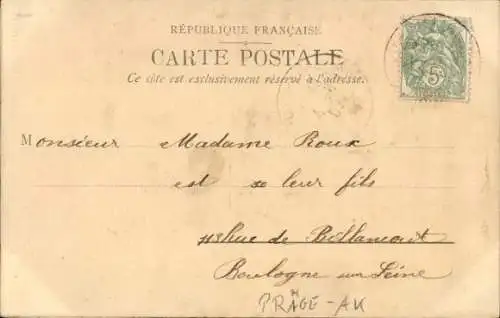 RÉPUBLIQUE FRANÇAISE
CARTE POSTALE
Ce côte est exclusivement réservé à l'adresse.
Monsieur Madame Roux
est leur fils
Rue de Billancourt
Boulogne sur Seine
PRÄGE-AK